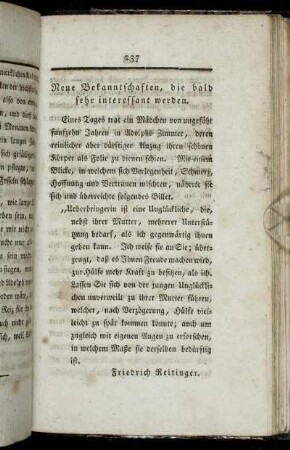 337
Neue Bekanntschaften, die bald
sehr interessant werden.
Eines Tages trat ein Mädchen von ungefähr
fünfzehn Jahren in Adolphs Zimmer, deren
reinlicher aber dürftiger Anzug ihren schönen
Körper als Folie zu dienen schien. Mit einem
Blicke, in welchen sich Verlegenheit, Schmerz,
Hoffnung und Vertrauen mischten, näherte sie
sich und überreichte folgendes Billet.
„Ueberbringerin ist eine Unglückliche, die,
nebst ihrer Mutter, mehrerer Unterstüz-
zung bedarf, als ich gegenwärtig ihnen
geben kann. Ich weise sie an Sie; über-
zeugt, daß es Ihnen Freude machen wird,
zur Hülfe mehr Kraft zu besitzen, als ich.
Lassen Sie sich von der jungen Unglückli-
chen unverweilt zu ihrer Mutter führen,
welcher, nach Verzögerung, Hülfe viel-
leicht zu spät kommen könnte; auch um
zugleich mit eigenen Augen zu erforschen,
in welchem Maße sie derselben bedürftig
ist.
Friedrich Reitinger.